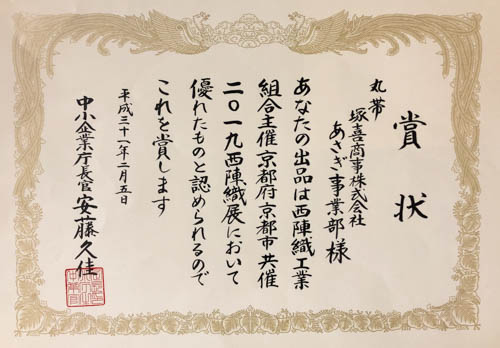 賞状
丸帯
塚喜商事株式会社
あさぎ事業部様
あなたの出品は西陣織工業
組合主催京都府京都市共催
二〇一九西陣織展において
優れたものと認められるので
これを賞します
平成三十一年二月五日
中小企業庁長官 安藤久佳